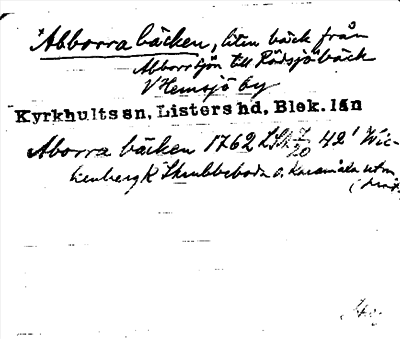 Abborra bäcken, liten bäck från
Abborrsjön till Rödsjöbäck
V Hemsjö by
Kyrkhults sn, Listers hd, Blek. län
Aborra bäcken 1762 LSA 7/20 42' Wic-
kenberg R Skubbeboda o. Karamåla utm